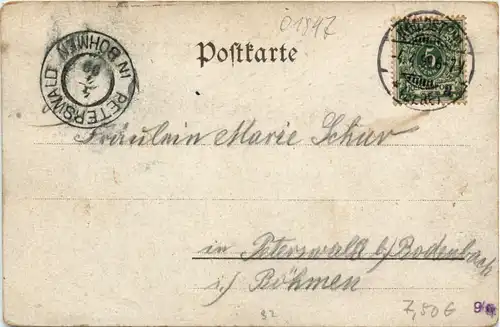 01847
Postkarte
PETERSWALD IN BÖHMEN
5
Fräulein Marie Schur
in Peterswald b/ Bodenbach
i/ Böhmen
92
7,50 €